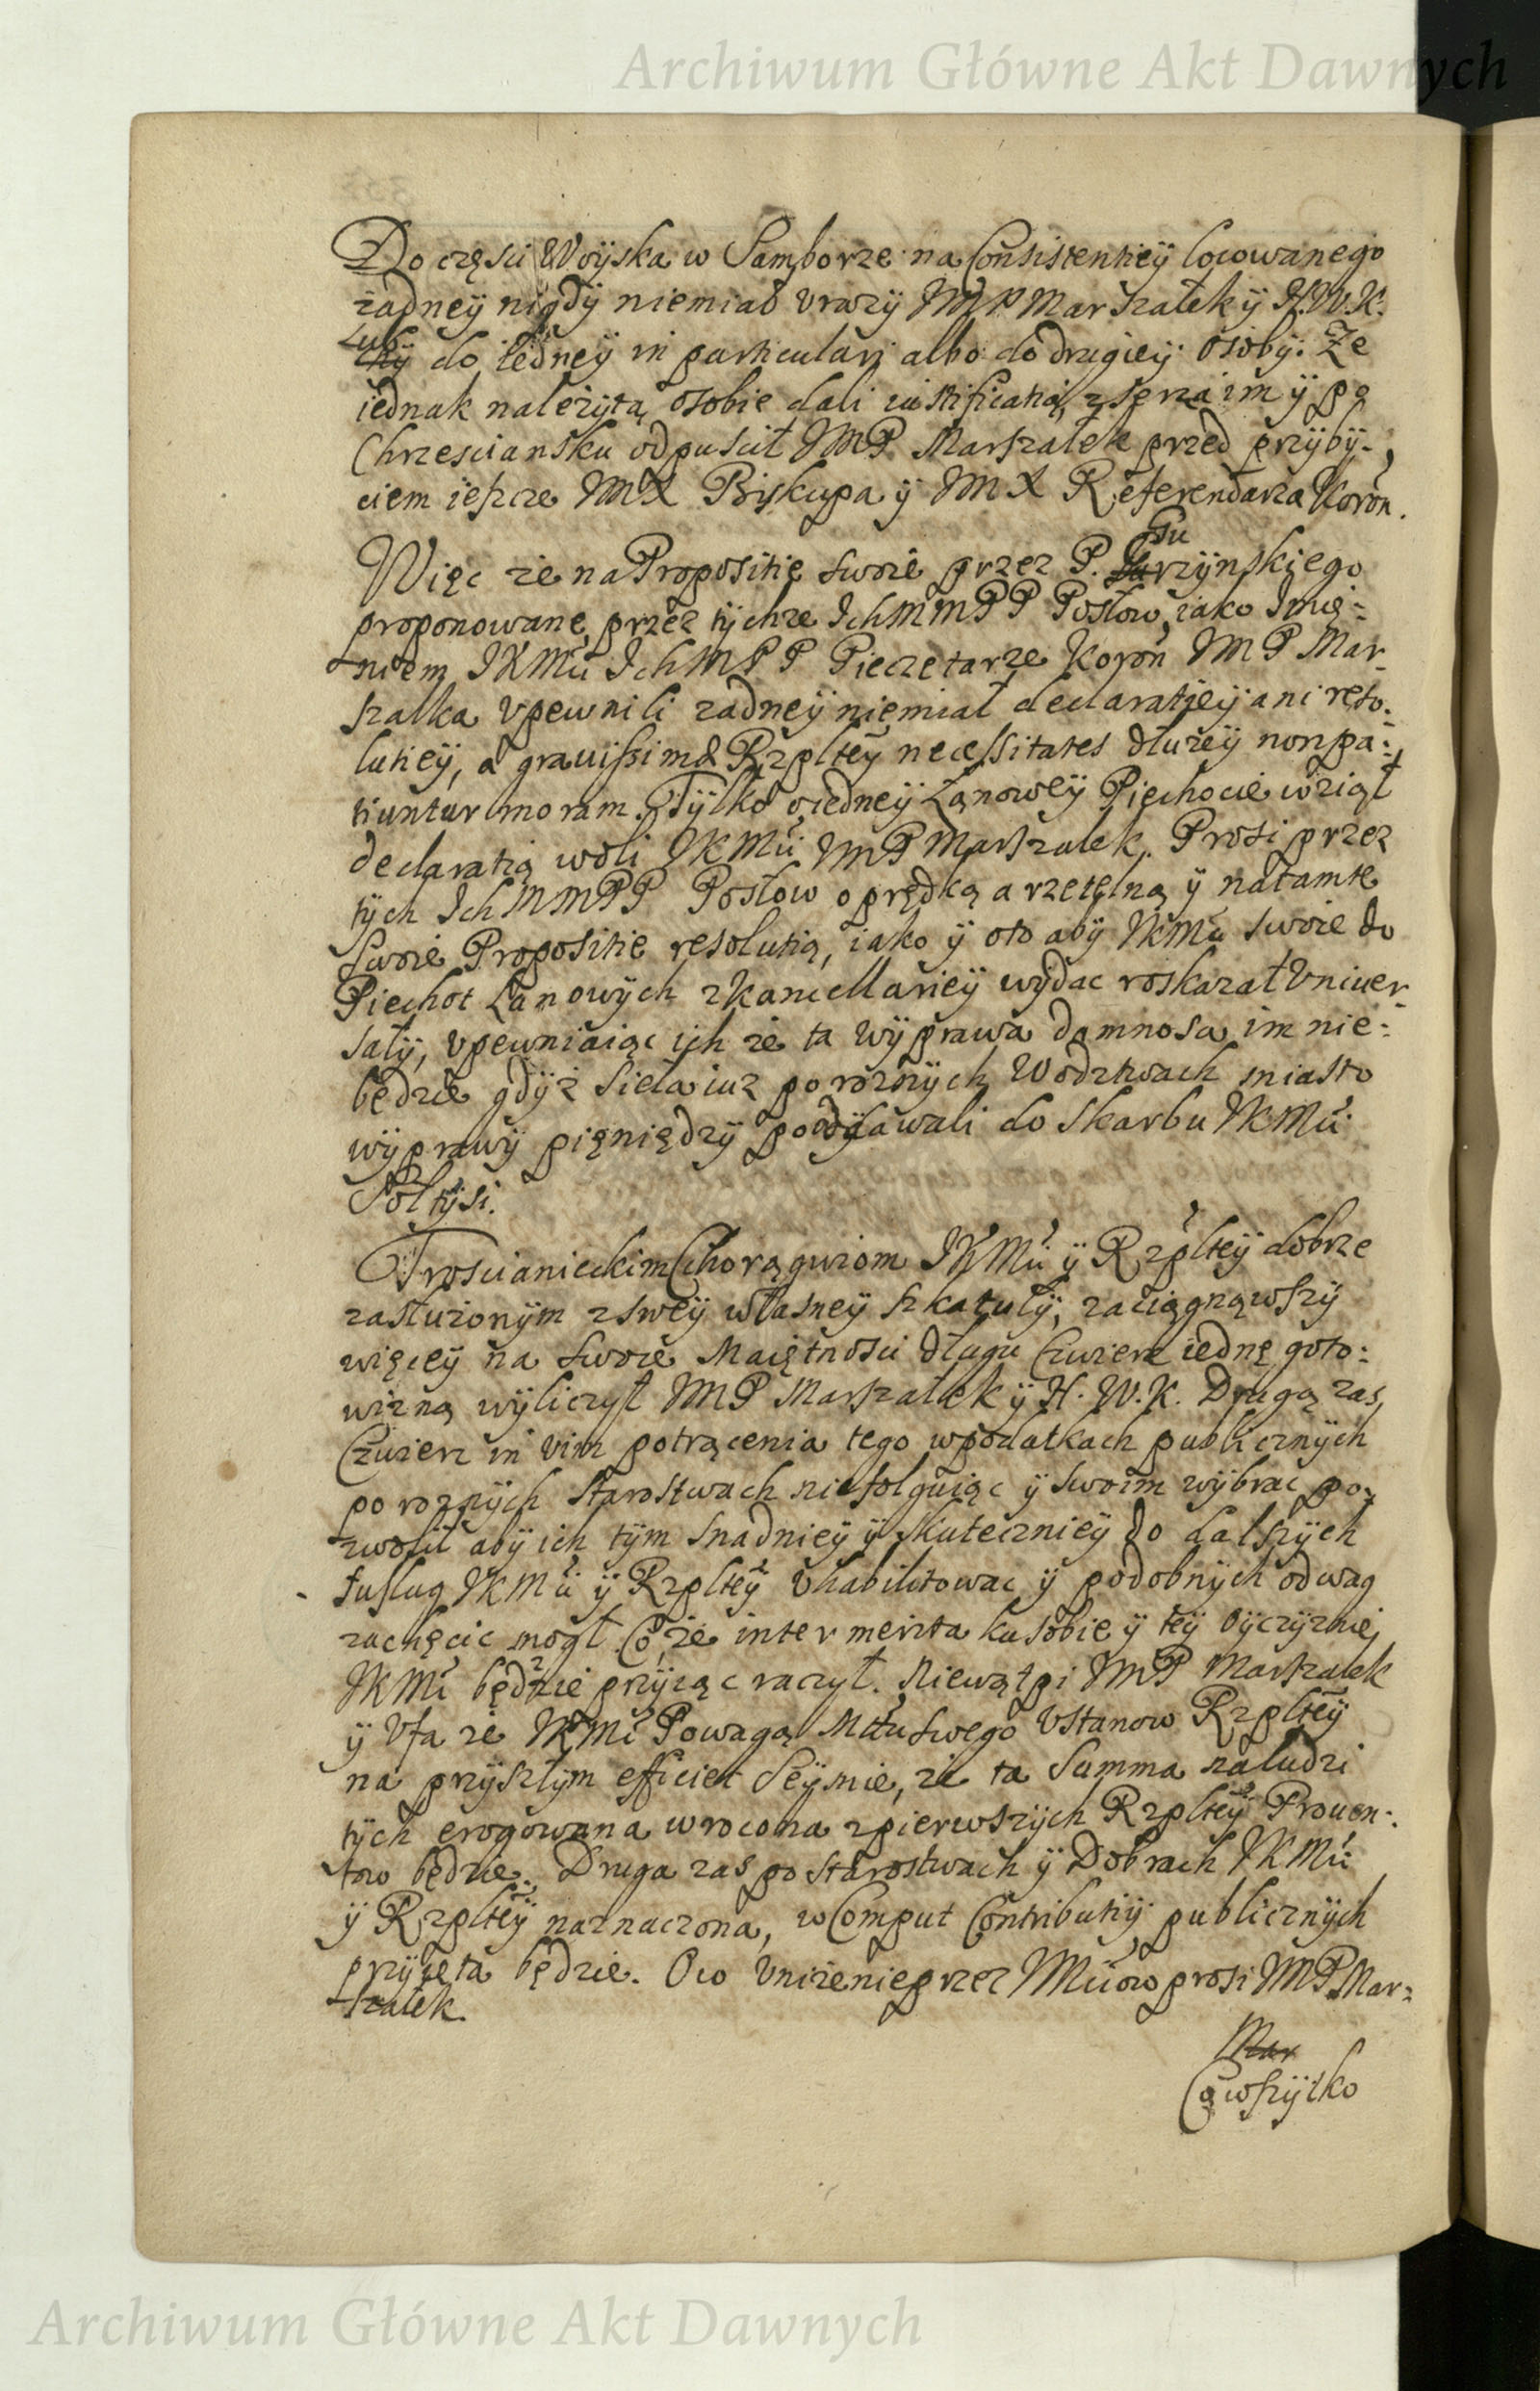 Archiwum Główne Akt Dawnych
Do częsci Woyska w Samborze na Consistentiey locowanego
żadney nigdy niemiał vrazy JMP Marszałek y H.W.K.
Lub do iedney in particulari albo do drugiey osoby. Że
iednak należytą osobie dali iustificatią, zserca im y po
Chrzesciansku odpuscił JMP. Marszałek przed przyby-
ciem ieszcze JMX Biskupa y JMX Referendarza Koron.
Więc że na Propositie swoie przez P. Su rzynskiego
proponowane, przez tychże IchMMPP Posłow, iako Imie-
niem JKMci IchMPP Pieczetarze Koron JMP Mar-
szałka vpewnili żadney niemiał declaratiey ani reso-
lutiey, a grauissimæ Rzpltey necessitates dłużey non pa-
tiuntur moram. Tylko o iedney Łanowey Piechocie wziął
declaratią woli JKMci JMP Marszałek. Prosi przez
tych IchMMPP Posłow o prędką a rzetelną y na tamte
swoie Propositie resolutią, iako y oto aby JKMć swoie do
Piechot Łanowych z Kancellariey wydac roskazał Vniuer-
sały, vpewniaiąc ich że ta wyprawa damnosa im nie-
będzie gdyż siela iuż po roznych Wodztwach miasto
wyprawy pięniędzy poddawali do Skarbu JKMci
Sołtysi.
Troscianieckim Chorągwiom JKMci y Rzpltey dobrze
zasłużonym zswey własney szkatuły, zaciągnąwszy
więcey na swoie Maiętnosci długu Czwierc iednę goto-
wizną wyliczył JMP Marszałek y H.W.K. Drugą zas
Czwierc in vim potrącenia tego w podatkach publicznych
po roznych Starostwach niefolguiąc y swoim wybrac po-
zwolił aby ich tym snadniey y skuteczniey do dalszych
Usług JKMci y Rzpltey vhabilitowac y podobnych odwag
zachęcic mogł. Co że inter merita ku sobie y tey Oyczyznie
JKMć będzie przyiąc raczył. Niewątpi JMP Marszałek
y Vfa że JKMć Powagą Mtu swego Vstanow Rzpltey
na przyszłym efficiet Seymie, że ta Summa na ludzi
tych erogowana wrocona zpierwszych Rzpltey Prouen-
tow będzie. Druga zas po starostwach y Dobrach JKMci
y Rzpltey naznaczona, w Comput Contributiy publicznych
przyięta będzie. O co vniżenie przez JMciow prosi JMP Mar-
szałek.
Mar
Co wszytko
Archiwum Główne Akt Dawnych